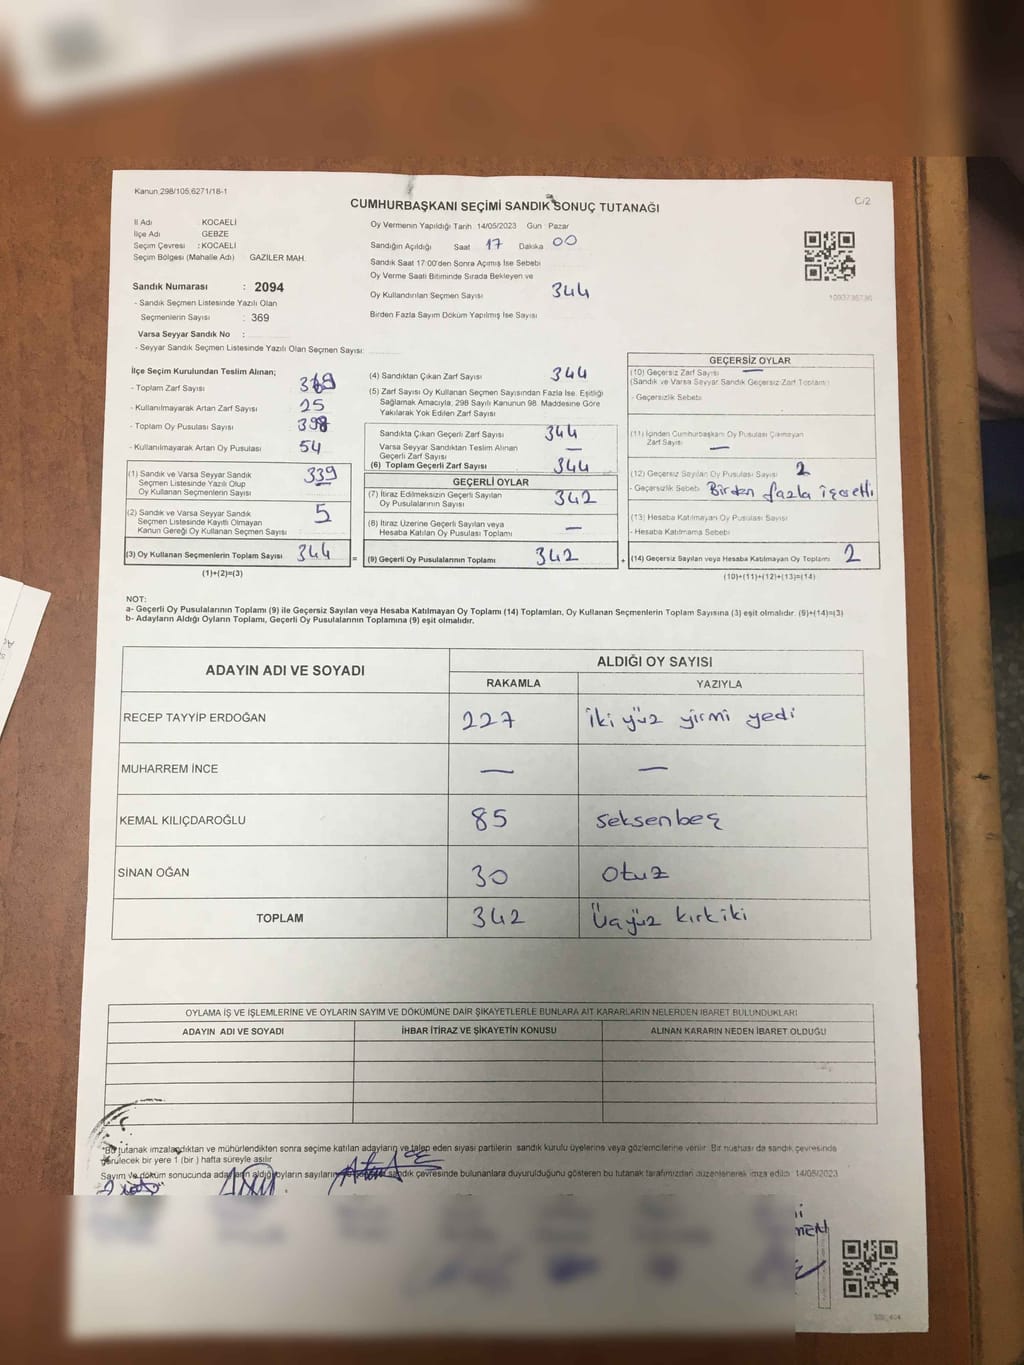 Kanun 298/105,6271/18-1
CUMHURBAŞKANI SEÇİMİ SANDIK SONUÇ TUTANAĞI
C/2
İl Adı KOCAELİ
İlçe Adı GEBZE
Seçim Çevresi : KOCAELİ
Seçim Bölgesi (Mahalle Adı) GAZİLER MAH.
Oy Vermenin Yapıldığı Tarih 14/05/2023 Gün : Pazar
Sandığın Açıldığı Saat 17 Dakika 00
Sandık Saat 17:00'den Sonra Açımış İse Sebebi
Oy Verme Saati Bitiminde Sırada Bekleyen ve
Oy Kullandırılan Seçmen Sayısı 344
Birden Fazla Sayım Döküm Yapılmış İse Sayısı
Sandık Numarası : 2094
- Sandık Seçmen Listesinde Yazılı Olan
Seçmenlerin Sayısı : 369
Varsa Seyyar Sandık No :
- Seyyar Sandık Seçmen Listesinde Yazılı Olan Seçmen Sayısı:
İlçe Seçim Kurulundan Teslim Alınan;
- Toplam Zarf Sayısı
- Kullanılmayarak Artan Zarf Sayısı 25
- Toplam Oy Pusulası Sayısı 398
- Kullanılmayarak Artan Oy Pusulası 54
(1) Sandık ve Varsa Seyyar Sandık
Seçmen Listesinde Yazılı Olup
Oy Kullanan Seçmenlerin Sayısı 339
(2) Sandık ve Varsa Seyyar Sandık
Seçmen Listesinde Kayıtlı Olmayan
Kanun Gereği Oy Kullanan Seçmen Sayısı 5
(3) Oy Kullanan Seçmenlerin Toplam Sayısı 344 =
(1)+(2)=(3)
(4) Sandıktan Çıkan Zarf Sayısı 344
(5) Zarf Sayısı Oy Kullanan Seçmen Sayısından Fazla İse, Eşitliği
Sağlamak Amacıyla, 298 Sayılı Kanunun 98. Maddesine Göre
Yakılarak Yok Edilen Zarf Sayısı
Sandıkta Çıkan Geçerli Zarf Sayısı 344
Varsa Seyyar Sandıktan Teslim Alınan
Geçerli Zarf Sayısı —
(6) Toplam Geçerli Zarf Sayısı 344
GEÇERLİ OYLAR
(7) İtiraz Edilmeksizin Geçerli Sayılan
Oy Pusulalarının Sayısı 342
(8) İtiraz Üzerine Geçerli Sayılan veya
Hesaba Katılan Oy Pusulası Toplamı —
(9) Geçerli Oy Pusulalarının Toplamı 342 +
GEÇERSİZ OYLAR
(10) Geçersiz Zarf Sayısı —
(Sandık ve Varsa Seyyar Sandık Geçersiz Zarf Toplamı)
- Geçersizlik Sebebi
(11) İçinden Cumhurbaşkanı Oy Pusulası Çıkmayan
Zarf Sayısı —
(12) Geçersiz Sayılan Oy Pusulası Sayısı 2
- Geçersizlik Sebebi Birden fazla işaretli
(13) Hesaba Katılmayan Oy Pusulası Sayısı
- Hesaba Katılmama Sebebi
(14) Geçersiz Sayılan veya Hesaba Katılmayan Oy Toplamı 2
(10)+(11)+(12)+(13)=(14)
NOT:
a- Geçerli Oy Pusulalarının Toplamı (9) ile Geçersiz Sayılan veya Hesaba Katılmayan Oy Toplamı (14) Toplamları, Oy Kullanan Seçmenlerin Toplam Sayısına (3) eşit olmalıdır. (9)+(14)=(3)
b- Adayların Aldığı Oyların Toplamı, Geçerli Oy Pusulalarının Toplamına (9) eşit olmalıdır.
ADAYIN ADI VE SOYADI
ALDIĞI OY SAYISI
RAKAMLA YAZIYLA
RECEP TAYYİP ERDOĞAN 227 iki yüz yirmi yedi
MUHARREM İNCE — —
KEMAL KILIÇDAROĞLU 85 seksenbeş
SİNAN OĞAN 30 Otuz
TOPLAM 342 Üçyüz kırkiki
OYLAMA İŞ VE İŞLEMLERİNE VE OYLARIN SAYIM VE DÖKÜMÜNE DAİR ŞİKAYETLERLE BUNLARA AİT KARARLARIN NELERDEN İBARET BULUNDUKLARI
ADAYIN ADI VE SOYADI İHBAR İTİRAZ VE ŞİKAYETİN KONUSU ALINAN KARARIN NEDEN İBARET OLDUĞU
*Bu tutanak imzalandıktan ve mühürlendikten sonra seçime katılan adayların ve talep eden siyasi partilerin sandık kurulu üyelerine veya gözlemcilerine verilir. Bir nüshası da sandık çevresinde
görülecek bir yere 1 (bir) hafta süreyle asılır
Sayım ve döküm sonucunda adayların aldığı oyların sayıların sandık çevresinde bulunanlara duyurulduğunu gösteren bu tutanak tarafımızdan düzenlenerek imza edildi. 14/05/2023